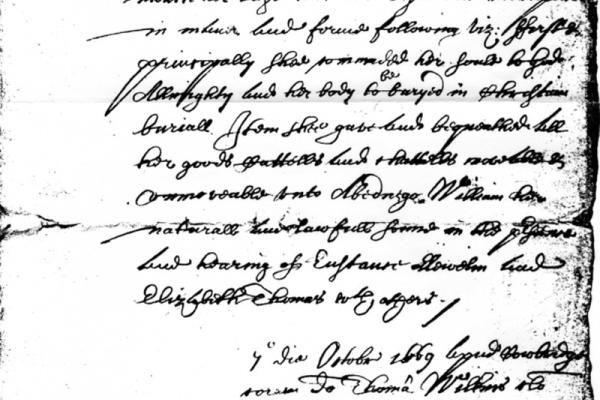 in maner and forme following viz: ffirst &
principally shee comended her soule to God
Allmighty and her body to be buryed in Christian
buriall Item shee gave and bequeathed all
her goods Cattells and chattells moveable &
unmoveable unto Abednego William her
naturall and lawfull sonne in the presence
and hearing of Eustance Llewelin and
Elizabeth Thomas with others.
7o die Octobr 1669 apud Cowbridge
coram Do Thoma Wilkins